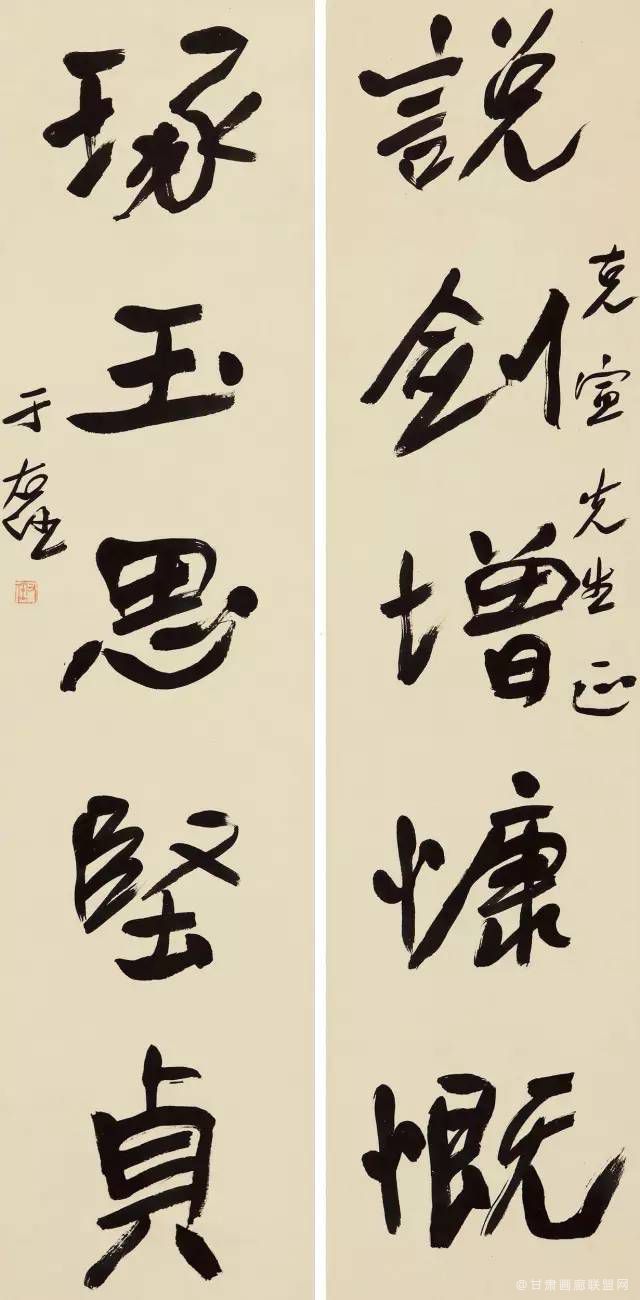 說劍增慷慨
克宣先生正
琢玉思堅貞
于右任
@甘肃画廊联盟网